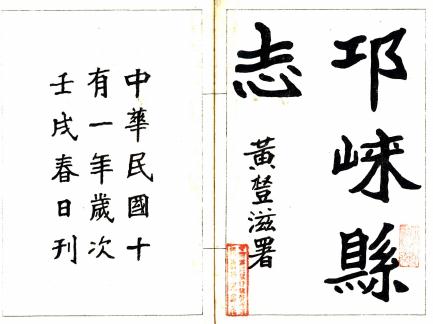 邛崍縣
志
黃登滋署
中華民國十
有一年歲次
壬戌春日刊